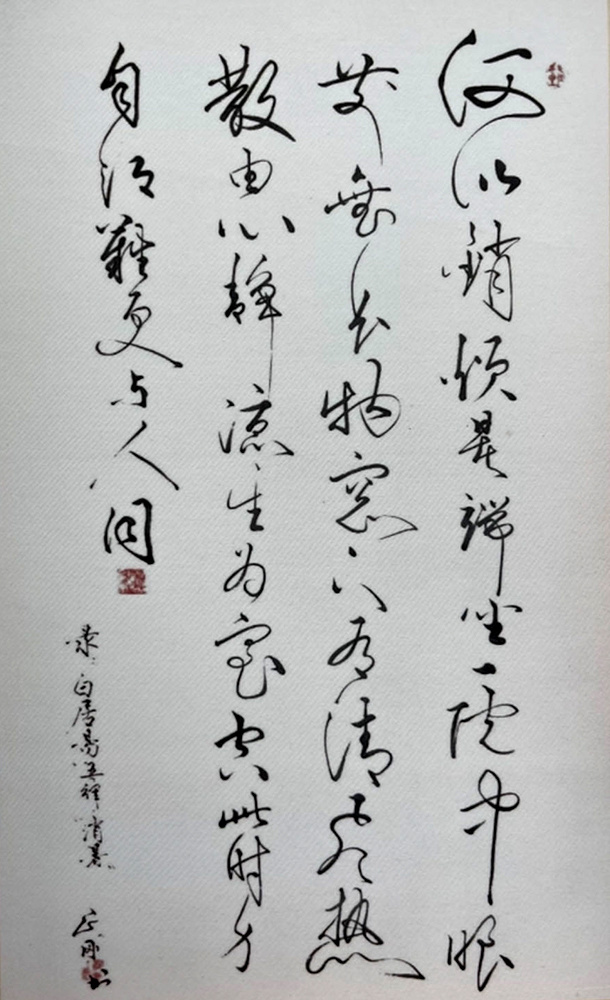 何以銷烦暑端坐一院中眼
前無长物窓下有清风热
散由心静涼生为室空此时身
自得難更与人同
录白居易五律消暑